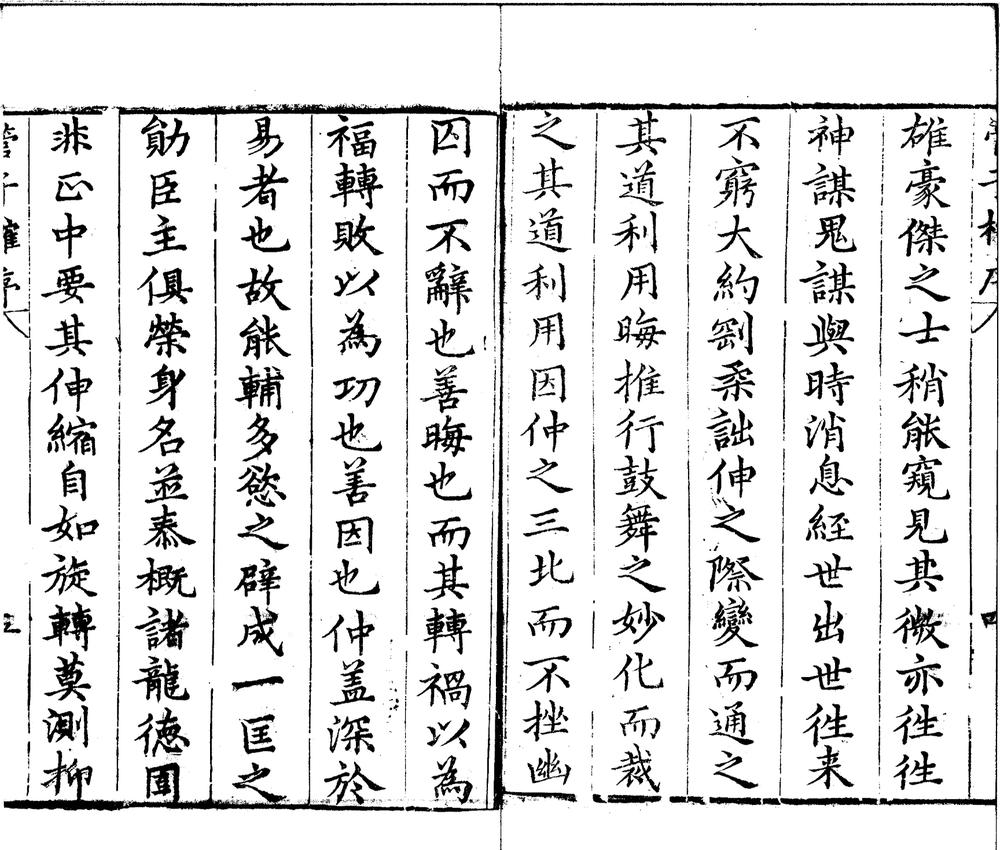 雄豪傑之士稍能窺見其微亦徃徃
神謀鬼謀與時消息経世出世徃来
不窮大約剛柔詘伸之際變而通之
其道利用晦推行鼓舞之妙化而裁
之其道利用因仲之三北而不挫幽
囚而不辭也善晦也而其轉禍以為
福轉敗以為功也善因也仲盖深於
易者也故能輔多慾之辟成一匡之
勛臣主俱榮身名並泰概諸龍徳固
非正中要其伸縮自如旋轉莫測抑